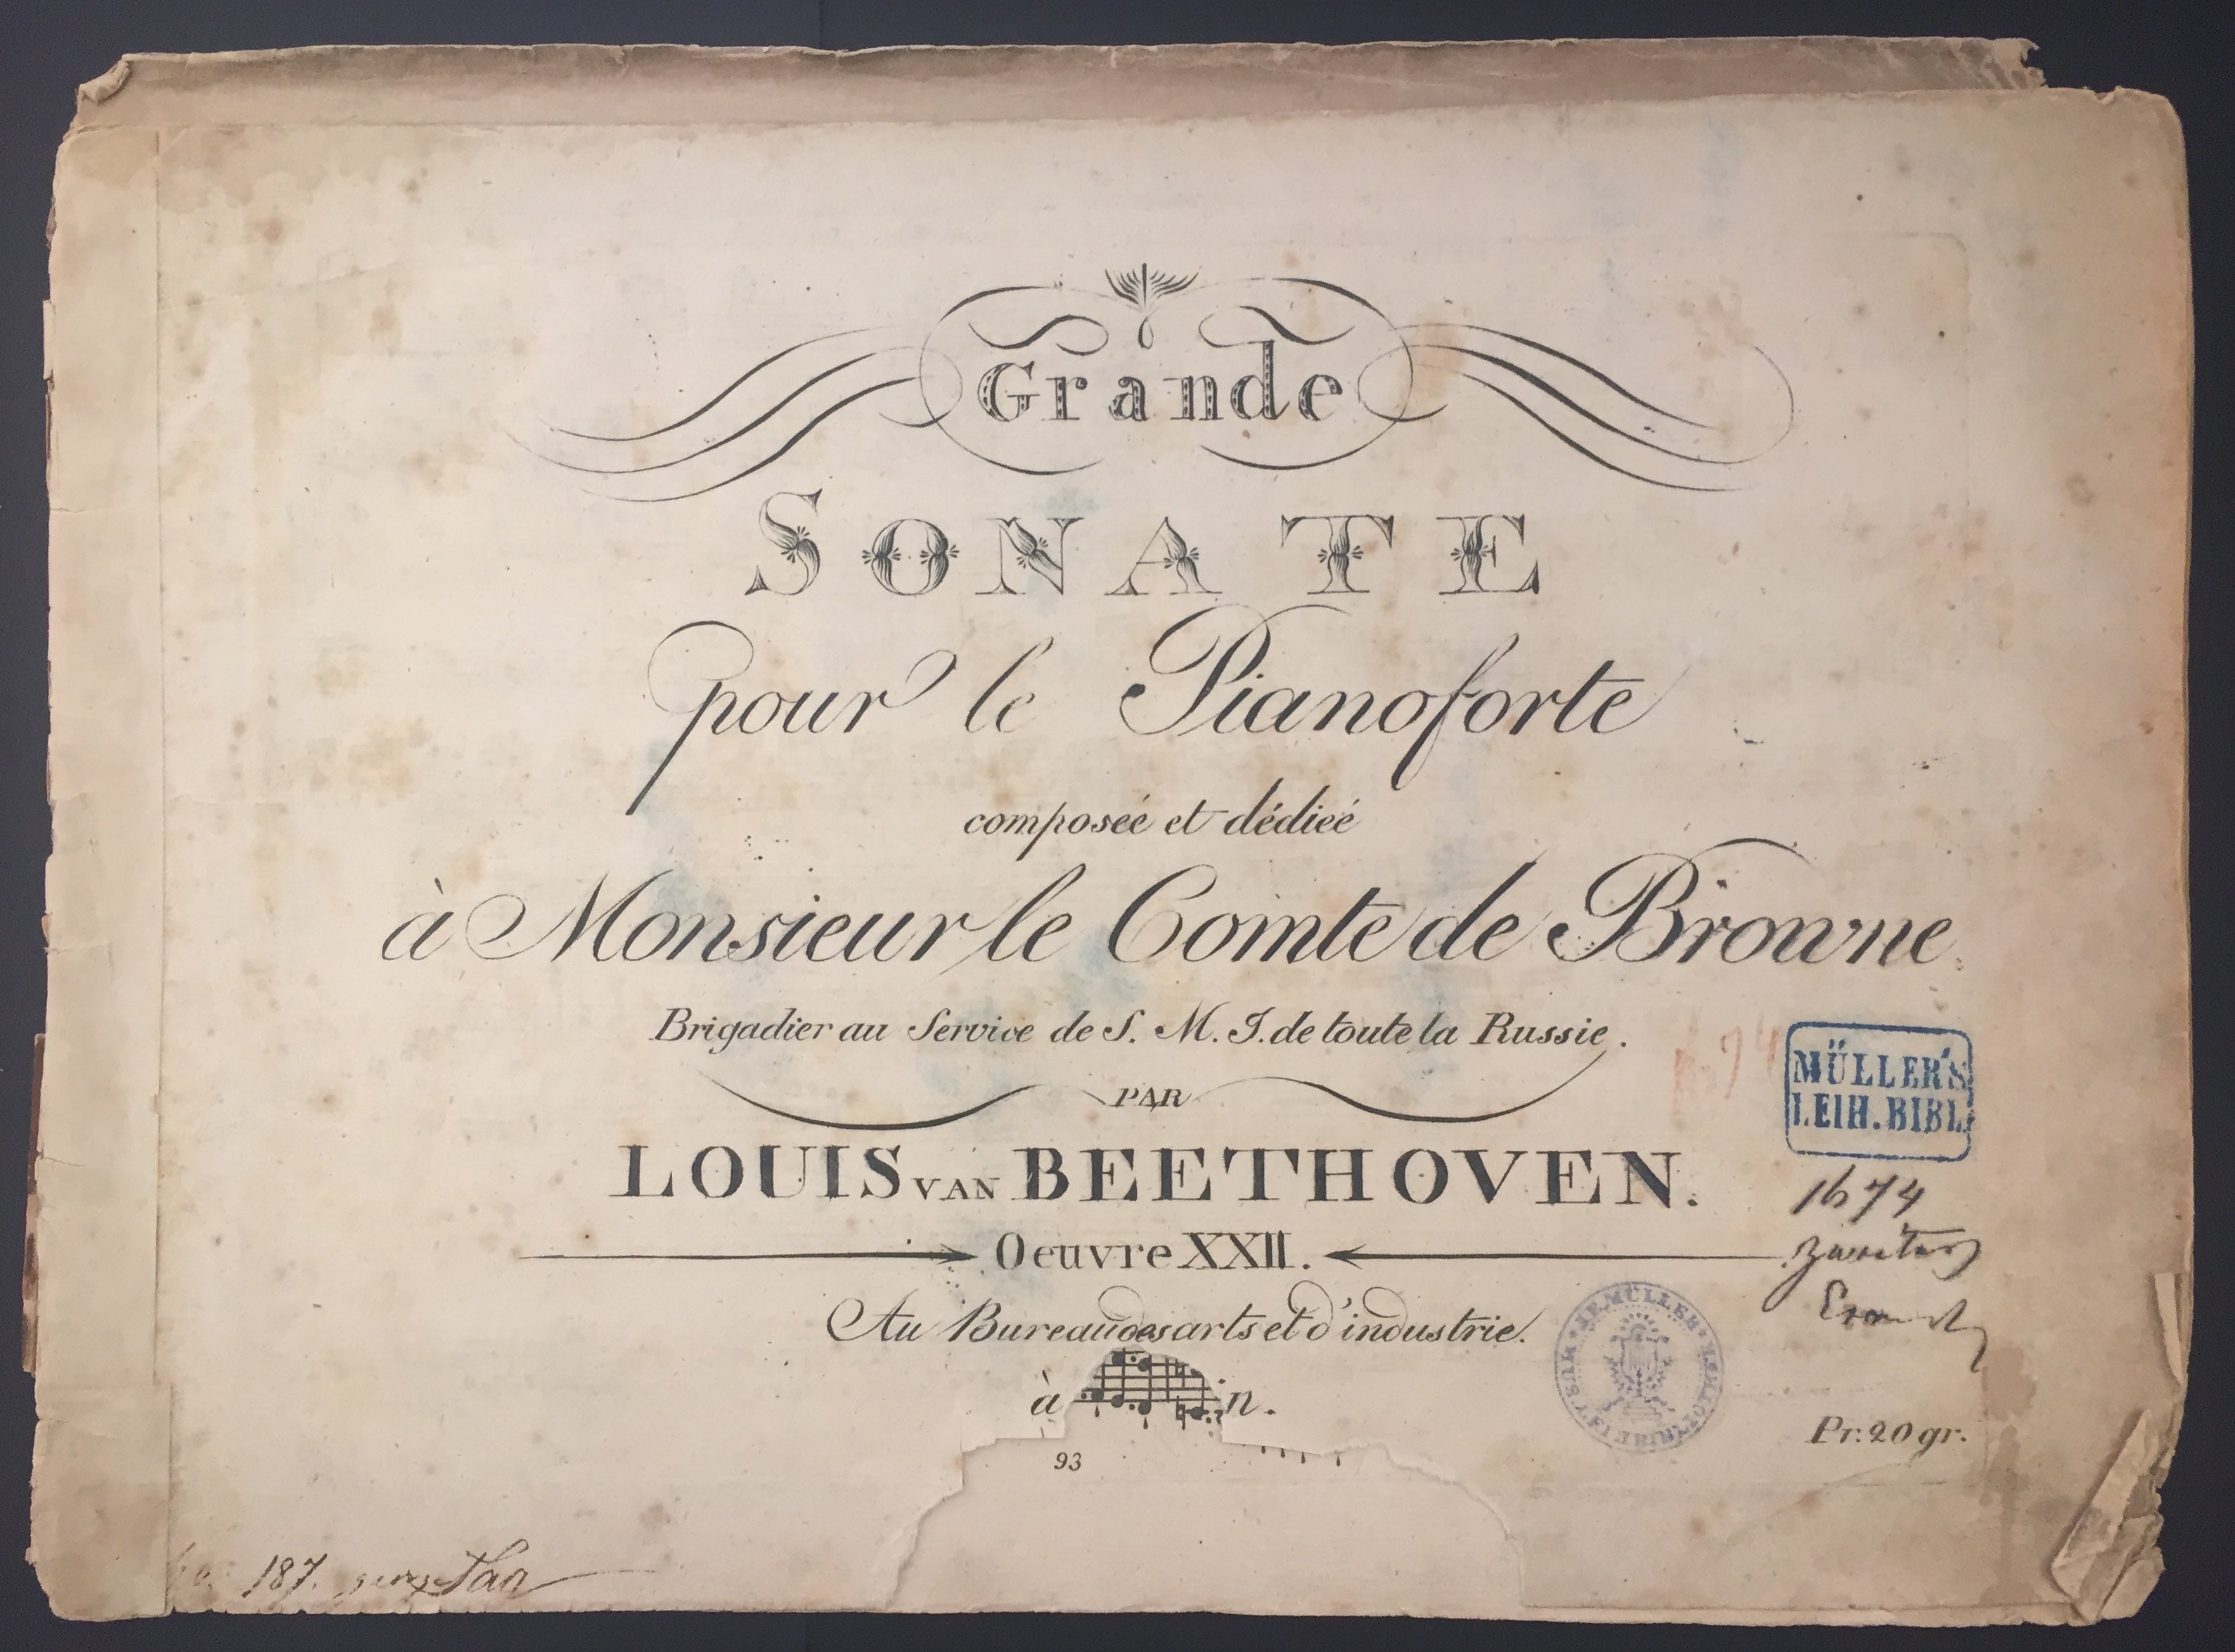 Grande
SONATE
pour le Pianoforte
composéé et dédiéé
à Monsieur le Comte de Browne
Brigadier au Service de S. M. I. de toute la Russie.
PAR
LOUIS VAN BEETHOVEN.
Oeuvre XXII.
Au Bureau des arts et d'industrie.
à n.
93
MÜLLER'S
LEIH. BIBL
1674
MÜLLER
Pr: 20 gr.
187.